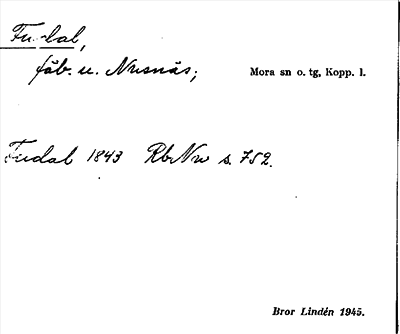 Fudal,
fäb. u. Nusnäs; Mora sn o. tg, Kopp. l.
Fudal 1843 RbNw s. 752.
Bror Lindén 1945.